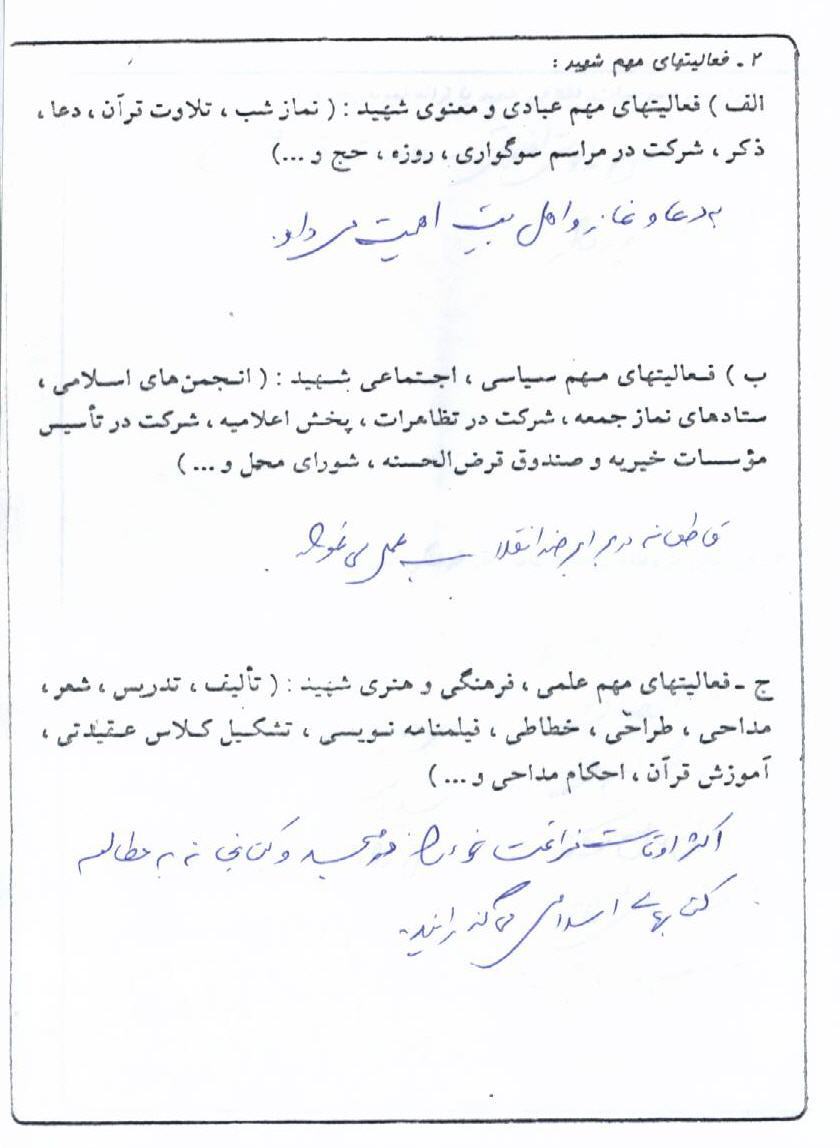 ۲ ـ فعالیتهای مهم شهید :
الف ) فعالیتهای مهم عبادی و معنوی شهید : ( نماز شب ، تلاوت قرآن ، دعا ،
ذکر ، شرکت در مراسم سوگواری ، روزه ، حج و ...)
به دعا و نماز و اهل بیت اهمیت می داد.
ب ) فعالیتهای مهم سیاسی ، اجتماعی شهید : ( انجمن‌های اسلامی ،
ستادهای نماز جمعه ، شرکت در تظاهرات ، پخش اعلامیه ، شرکت در تأسیس
مؤسسات خیریه و صندوق قرض‌الحسنه ، شورای محل و ... )
قاطعانه در برابر ضد انقلاب عمل می نمود
ج ـ فعالیتهای مهم علمی ، فرهنگی و هنری شهید : ( تألیف ، تدریس ، شعر ،
مداحی ، طراحّی ، خطاطی ، فیلمنامه نویسی ، تشکیل کلاس عقیدتی ،
آموزش قرآن ، احکام مداحی و ... )
اکثر اوقات فراغت خود را در مسجد و کتابخانه به مطالعه
کتابهای اسلامی می گذرانید.